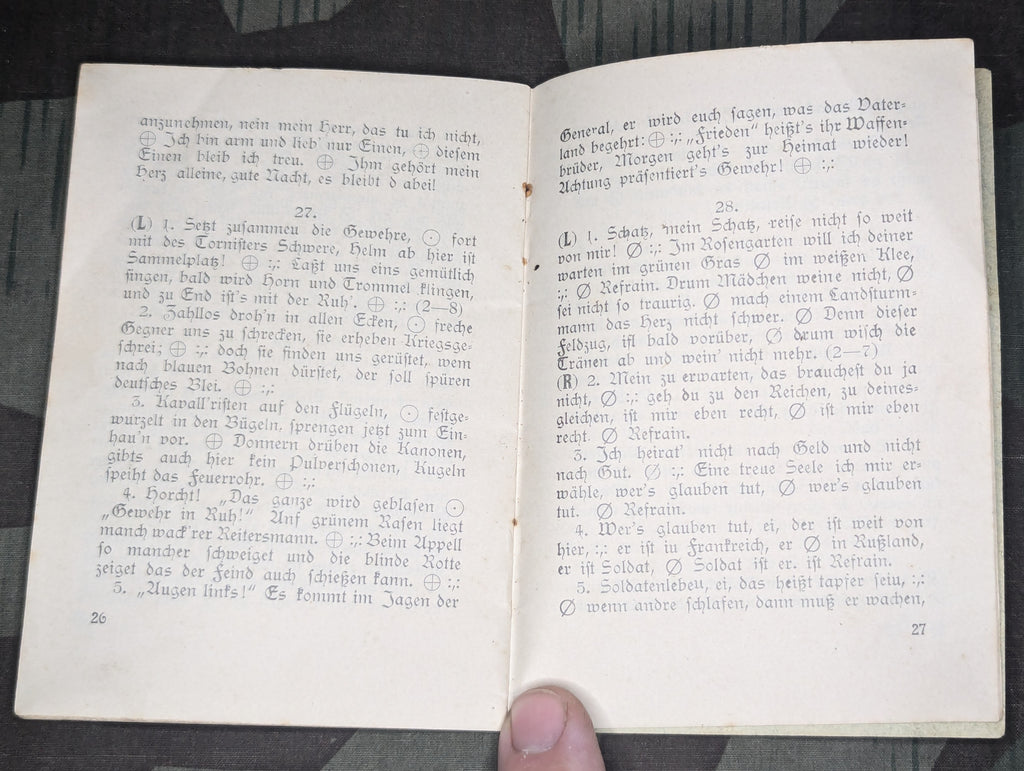 anzunehmen, nein mein Herr, das tu ich nicht,
⊕ Ich bin arm und lieb' nur Einen, ⊕ diesem
Einen bleib ich treu. ⊕ Ihm gehört mein
Herz alleine, gute Nacht, es bleibt d abei!
27.
(L) 1. Setzt zusammeu die Gewehre, ⊙ fort
mit des Tornisters Schwere, Helm ab hier ist
Sammelplatz! ⊕ :,: Laßt uns eins gemütlich
singen, bald wird Horn und Trommel klingen,
und zu End ist's mit der Ruh'. ⊕ :,: (2—8)
2. Zahllos droh'n in allen Ecken, ⊙ freche
Gegner uns zu schrecken, sie erheben Kriegsge-
schrei; ⊕ :,: doch sie finden uns gerüstet, wem
nach blauen Bohnen dürstet, der soll spüren
deutsches Blei. ⊕ :,:
3. Kavall'risten auf den Flügeln, ⊙ festge-
wurzelt in den Bügeln, sprengen jetzt zum Ein-
hau'n vor. ⊕ Donnern drüben die Kanonen,
gibts auch hier kein Pulverschonen, Kugeln
speiht das Feuerrohr. ⊕ :,:
4. Horcht! „Das ganze wird geblasen ⊙
„Gewehr in Ruh!" Anf grünem Rasen liegt
manch wack'rer Reitersmann. ⊕ :,: Beim Appell
so mancher schweiget und die blinde Rotte
zeiget das der Feind auch schießen kann. ⊕ :,:
5. „Augen links!" Es kommt im Jagen der
26
General, er wird euch sagen, was das Vater-
land begehrt: ⊕ :,: „Frieden" heißt's ihr Waffen-
brüder, Morgen geht's zur Heimat wieder!
Achtung präsentiert's Gewehr! ⊕ :,:
28.
(L) 1. Schatz, mein Schatz, reise nicht so weit
von mir! Ø :,: Im Rosengarten will ich deiner
warten im grünen Gras Ø im weißen Klee,
:,: Ø Refrain. Drum Mädchen weine nicht, Ø
sei nicht so traurig. Ø mach einem Landsturm-
mann das Herz nicht schwer. Ø Denn dieser
Feldzug, ist bald vorüber, Ø drum wisch die
Tränen ab und wein' nicht mehr. (2—7)
(R) 2. Mein zu erwarten, das brauchest du ja
nicht, Ø :,: geh du zu den Reichen, zu deines-
gleichen, ist mir eben recht, Ø ist mir eben
recht. Ø Refrain.
3. Ich heirat' nicht nach Geld und nicht
nach Gut. Ø :,: Eine treue Seele ich mir er-
wähle, wer's glauben tut, Ø wer's glauben
tut. Ø Refrain.
4. Wer's glauben tut, ei, der ist weit von
hier, :,: er ist iu Frankreich, er Ø in Rußland,
er ist Soldat, Ø Soldat ist er. ist Refrain.
5. Soldatenlebeu, ei, das heißt tapfer seiu, :,:
Ø wenn andre schlafen, dann muß er wachen,
27